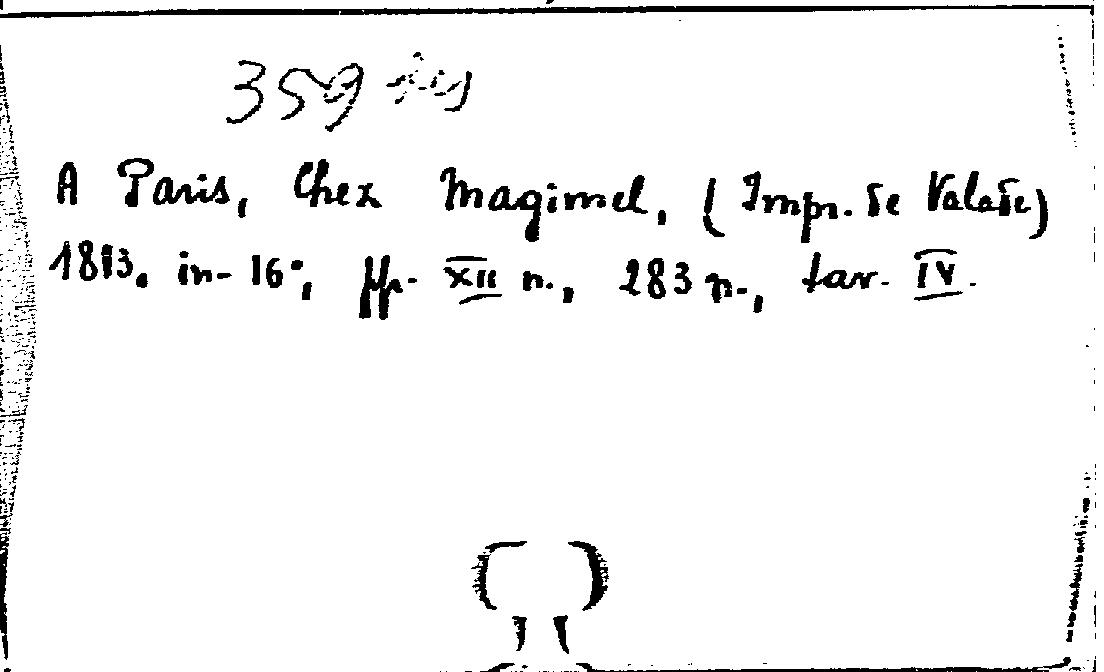 359
A Paris, Chez Magimel, (Impr. de Valade)
1813. in-16°, pp. XII n., 283 n., tav. IV.